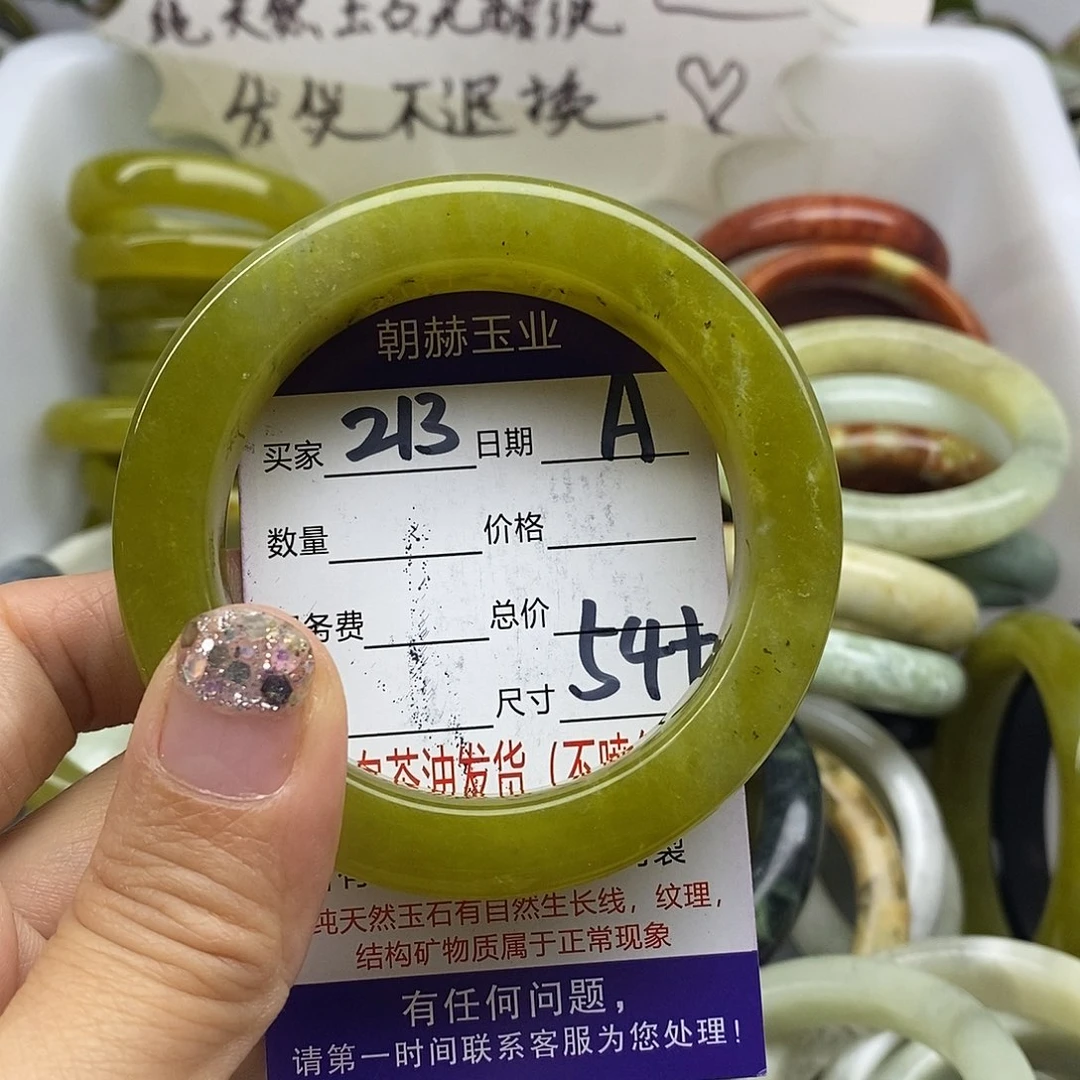 纯天然玉石无瑕疵
发货不退换
朝赫玉业
买家 213 日期 A
数量 价格
务费 总价
尺寸 54+
茶油发货(不喷
裂
纯天然玉石有自然生长线,纹理,
结构矿物质属于正常现象
有任何问题,
请第一时间联系客服为您处理!